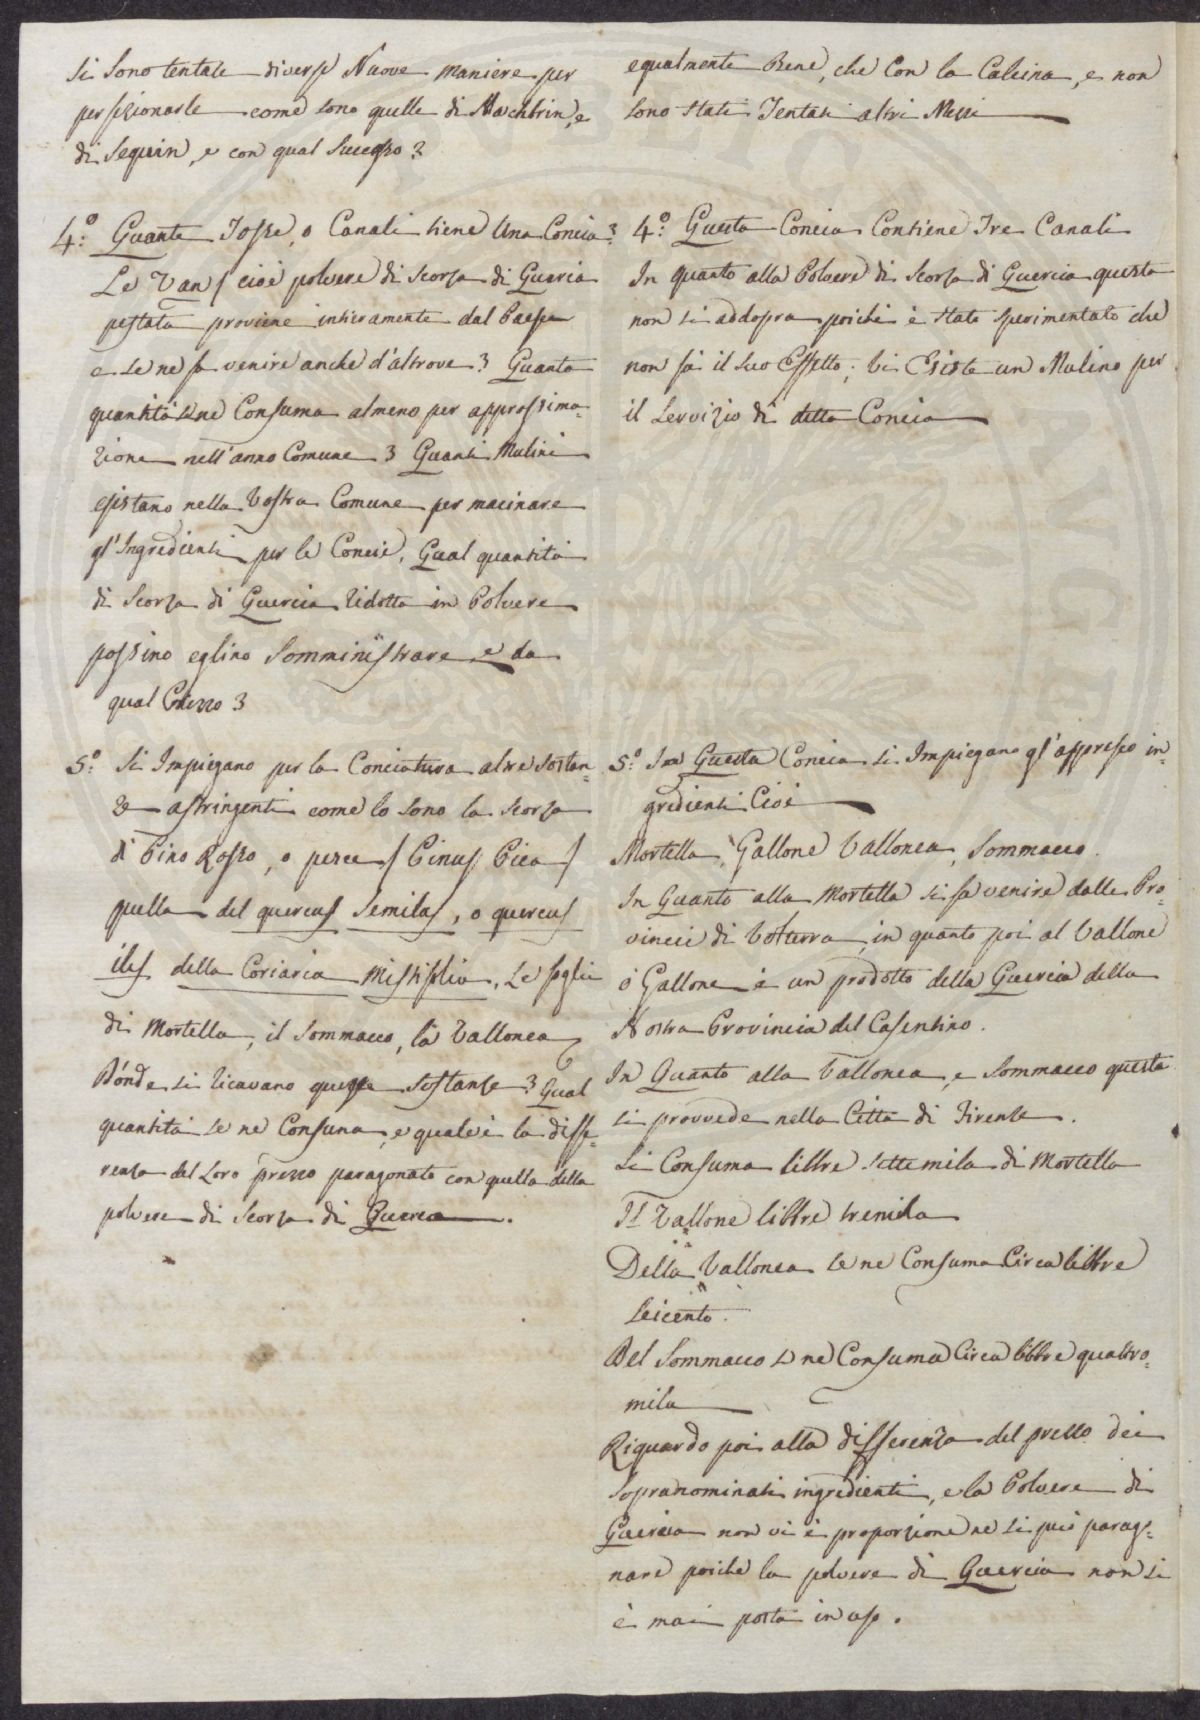 si sono tentate diverse Nuove maniere per
perfezionarle come sono quelle di Mackbrin, e
di Sequin, e con qual Successo?
4.º Quante Fosse, o Canali tiene Una Concia?
Le Tan / cioè polvere di Scorza di Quercia
pestata proviene intieramente dal Paese
e se ne fa venire anche d'altrove? Quanta
quantità se ne Consuma almeno per approssima-
zione nell'anno Comune? Quanti Mulini
esistano nella Vostra Comune per macinare
gl'Ingredienti per le Concie, Qual quantità
di Scorza di Quercia ridotta in Polvere
possino eglino Somministrare e da
qual Prezzo?
5.º Si Impiegano per la Conciatura altre Sostan-
ze astringenti come lo sono la Scorza
di Pino Rosso, o pesce / Pinus Picea /
quella del quercus Semilas, o quercus
iles della Coriaria Mistifolia, Le foglie
di Mortella, il Sommacco, la Vallonea
D'onde si ricavano queste Sostanze? Qual
quantità se ne Consuma, e quale è la diffe-
renza del Loro prezzo paragonato con quella della
polvere di Scorza di Quercia.
equalmente Bene, che Con la Calcina, e non
sono stati Tentati altri Mezzi
4.º Questa Concia Contiene Tre Canali
In quanto alla Polvere di Scorza di Quercia questa
non si addopra poichè è stato sperimentato che
non fà il suo Effetto; Vi Esiste un Mulino per
il Servizio di detta Concia
5.º In Questa Concia si Impiegano gl'appresso in-
gredienti Cioè
Mortella, Gallone Vallonea, Sommacco.
In Quanto alla Mortella si fa venire dalle Pro-
vincie di Volterra, in quanto poi al Vallone
ò Gallone è un prodotto della Quercia della
Nostra Provincia del Casentino.
In Quanto alla Vallonea, e Sommacco questa
si provvede nella Città di Firenze.
Si Consuma libbre Settemila di Mortella
Il Vallone libbre tremila
Della Vallonea se ne Consuma Circa libbre
Seicento.
Del Sommacco se ne Consuma Circa libbre quattro-
mila
Riguardo poi alla differenza del prezzo dei
Sopranominati ingredienti, e la Polvere di
Quercia non vi è proporzione ne si può parago-
nare poiche la polvere di Quercia non si
è mai posta in uso.